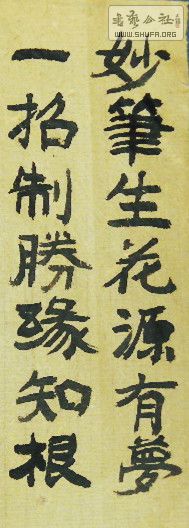 妙筆生花源有夢
一招制勝緣知根
書藝公社
WWW.SHUFA.ORG